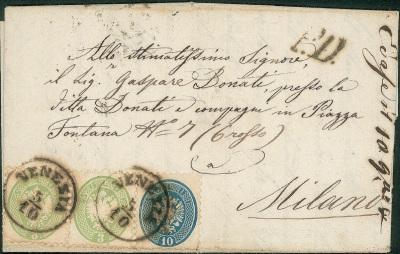 P.D.
Allo stimatissimo Signore,
il Sig. Gaspare Donati, presso la
ditta Donati e compagni in Piazza
Fontana N° 7 (Grosso)
(a
Milano
VENEZIA
5/10
VENEZIA
5/10
10